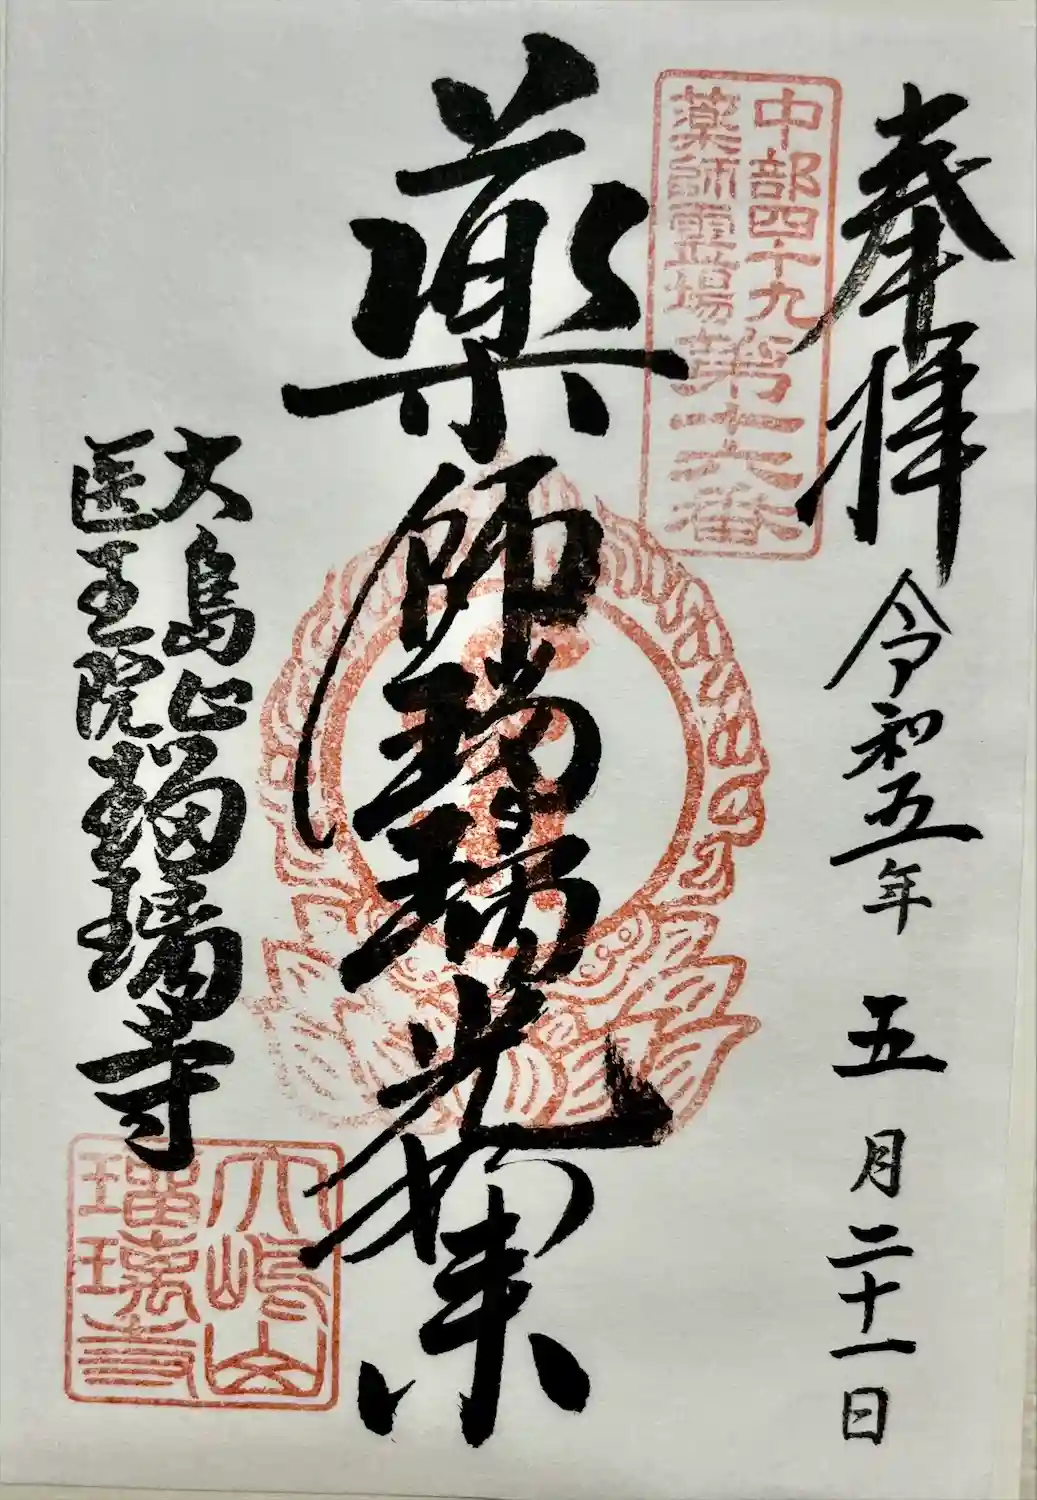 奉拝
令和五年 五月二十一日
中部四十九
薬師霊場第十六番
薬師瑠璃光如来
大島山
医王院瑠璃寺
大嶋山
瑠璃寺